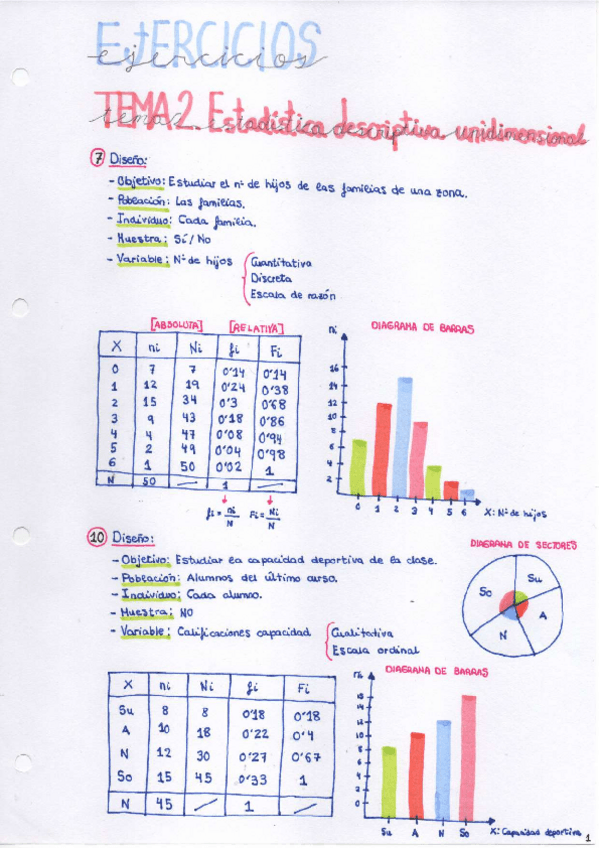 EJERCICIOS
ejercicios
TEMA 2. Estadística descriptiva unidimensional
tema 2. estadística descriptiva unidimensional
7 Diseño:
- Objetivo: Estudiar el nº de hijos de las familias de una zona.
- Población: Las familias.
- Individuo: Cada familia.
- Muestra: Sí / No
- Variable: Nº de hijos
Cuantitativa
Discreta
Escala de razón
[ABSOLUTA] [RELATIVA]
X ni Ni fi Fi
0 7 7 0'14 0'14
1 12 19 0'24 0'38
2 15 34 0'3 0'68
3 9 43 0'18 0'86
4 4 47 0'08 0'94
5 2 49 0'04 0'98
6 1 50 0'02 1
N 50 1
fi = ni/N Fi = Ni/N
DIAGRAMA DE BARRAS
ni
16
14
12
10
8
6
4
2
0 1 2 3 4 5 6
X: Nº de hijos
10 Diseño:
- Objetivo: Estudiar la capacidad deportiva de la clase.
- Población: Alumnos del último curso.
- Individuo: Cada alumno.
- Muestra: NO
- Variable: Calificaciones capacidad
Cualitativa
Escala ordinal
DIAGRAMA DE SECTORES
So Su
A
N
X ni Ni fi Fi
Su 8 8 0'18 0'18
A 10 18 0'22 0'4
N 12 30 0'27 0'67
So 15 45 0'33 1
N 45 1
DIAGRAMA DE BARRAS
ni
14
12
10
8
6
4
2
0
Su A N So
X: Capacidad deportiva
1